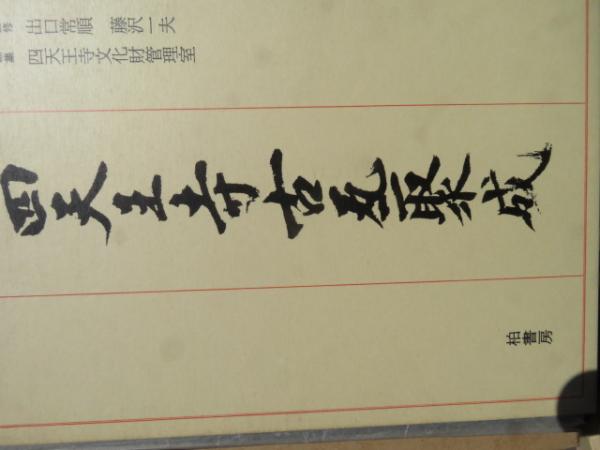 監修 出口常順 藤沢一夫
編集 四天王寺文化財管理室
四天王寺古瓦聚成
柏書房